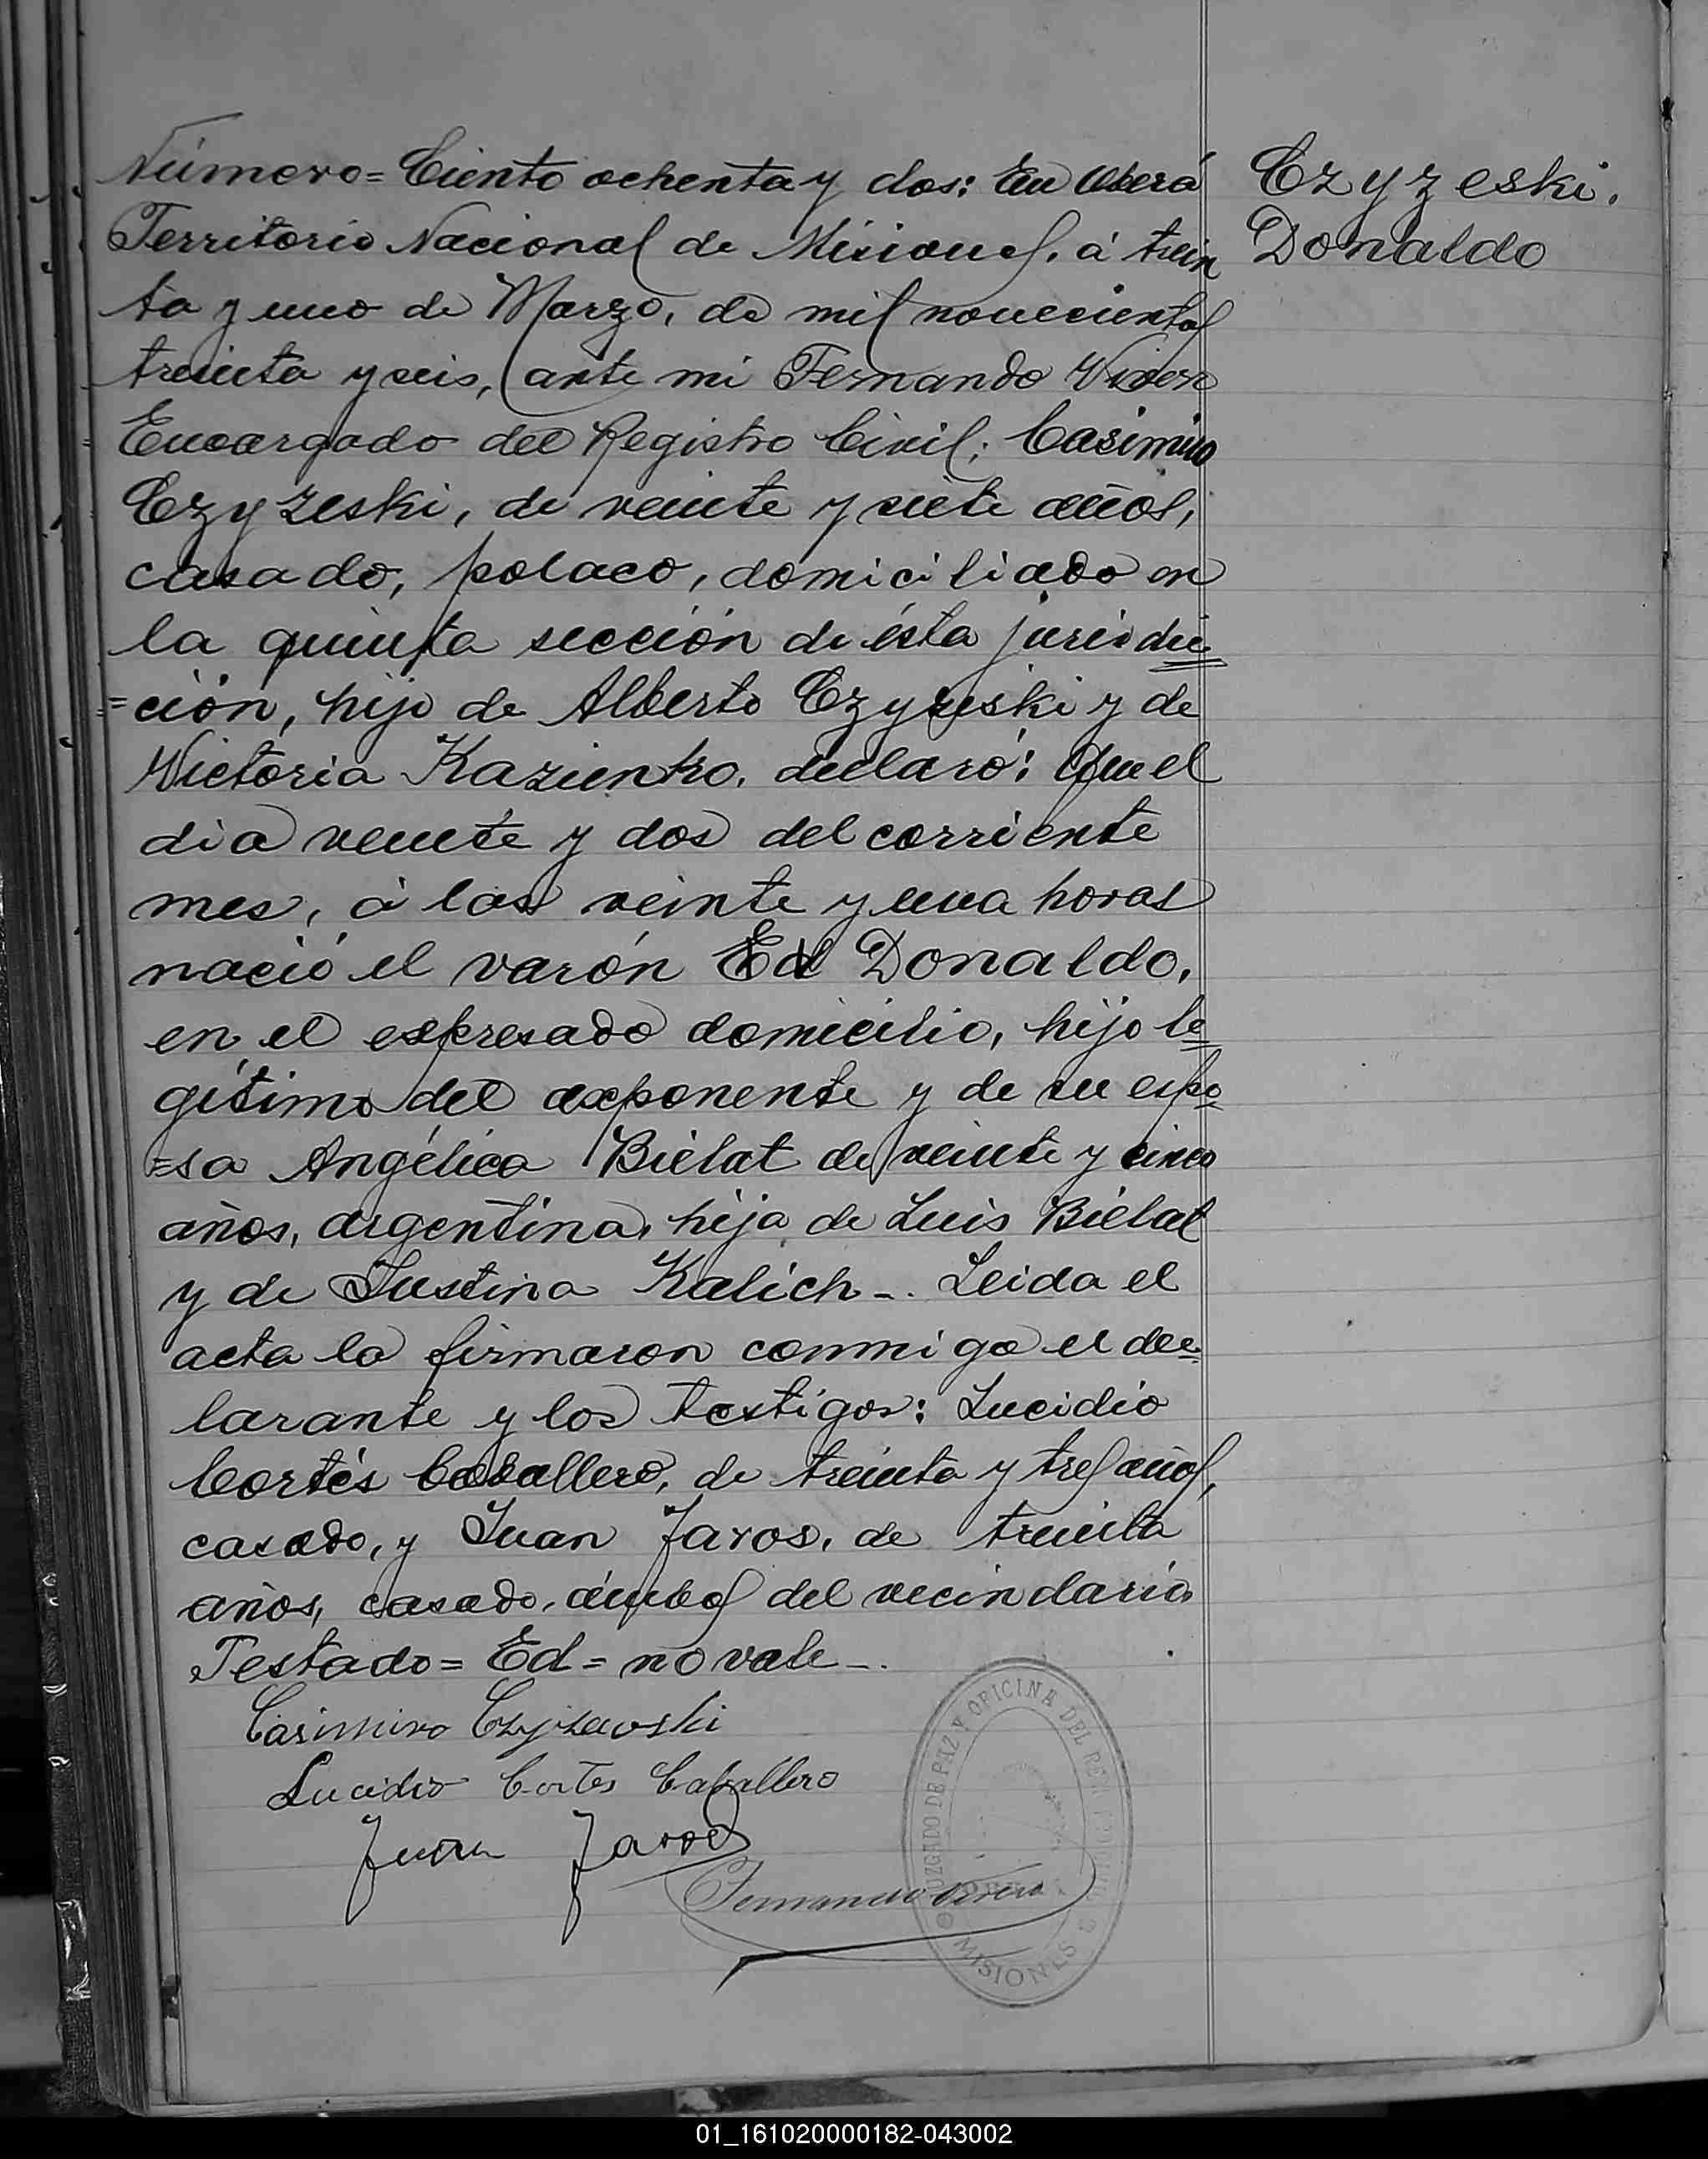 Número= Ciento ochenta y dos: En Oberá
Territorio Nacional de Misiones, á trein
ta y uno de Marzo, de mil novecientos
treinta y seis, ante mi Fernando
Encargado del Registro Civil; Casimiro
Czyzeski, de veinte y siete años,
casado, polaco, domiciliado en
la quinta sección de ésta jurisdic
=ción, hijo de Alberto Czyzeski y de
Wictoria Kazienko, declaró: Que el
dia veinte y dos del corriente
mes, á las veinte y una horas
nació el varón Ed Donaldo,
en el expresado domicilio, hijo le
gítimo del exponente y de su espo
=sa Angélica Bielat de veinte y cinco
años, argentina, hija de Luis Bielat
y de Justina Kalich-. Leida el
acta la firmaron conmigo el dec
larante y los testigos: Lucidio
Cortés Caballero, de treinta y tres años,
casado, y Juan Jaros, de treinta
años, casado, ámbos del vecindario
Testado= Ed= no vale-.
Casimiro Czyżewski
Lucidio Cortes Caballero
Juan Jaros
Fernando
JUZGADO DE PAZ Y OFICINA DEL
MISIONES
Czyzeski.
Donaldo
01_161020000182-043002